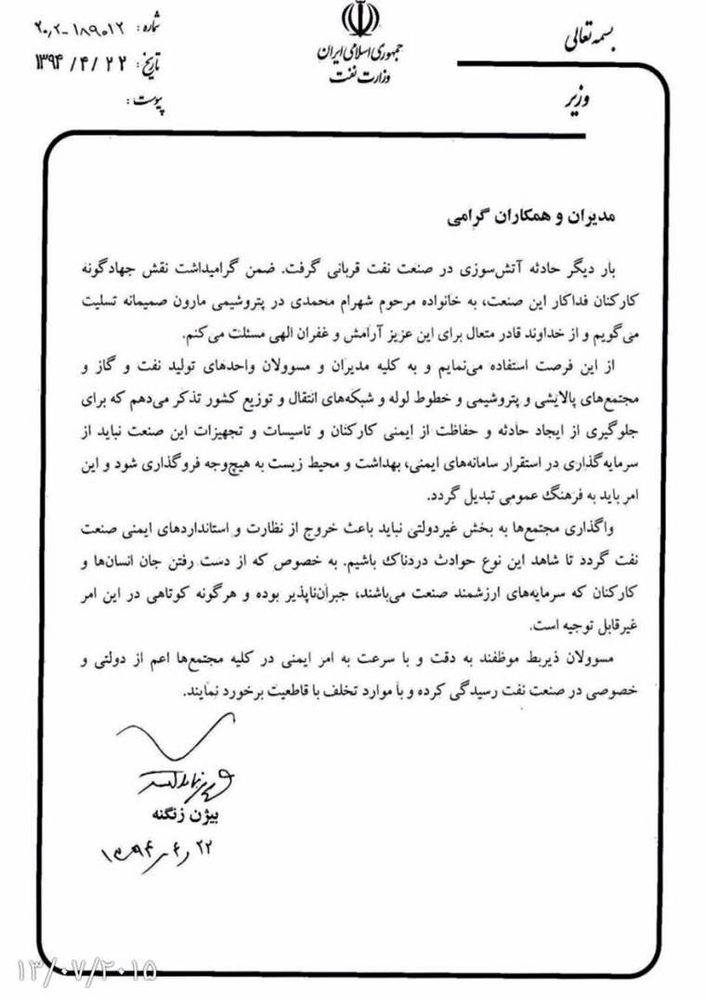 بسمه تعالی
جمهوری اسلامی ایران
وزارت نفت
شماره: ۲۰٫۲-۱۸۹۰۱۲
تاریخ: ۱۳۹۴/۴/۲۲
پیوست:
وزیر
مدیران و همکاران گرامی
بار دیگر حادثه آتش‌سوزی در صنعت نفت قربانی گرفت. ضمن گرامیداشت نقش جهادگونه
کارکنان فداکار این صنعت، به خانواده مرحوم شهرام محمدی در پتروشیمی مارون صمیمانه تسلیت
می‌گویم و از خداوند قادر متعال برای این عزیز آرامش و غفران الهی مسئلت می‌کنم.
از این فرصت استفاده می‌نمایم و به کلیه مدیران و مسوولان واحدهای تولید نفت و گاز و
مجتمع‌های پالایشی و پتروشیمی و خطوط لوله و شبکه‌های انتقال و توزیع کشور تذکر می‌دهم که برای
جلوگیری از ایجاد حادثه و حفاظت از ایمنی کارکنان و تاسیسات و تجهیزات این صنعت نباید از
سرمایه‌گذاری در استقرار سامانه‌های ایمنی، بهداشت و محیط زیست به هیچ‌وجه فروگذاری شود و این
امر باید به فرهنگ عمومی تبدیل گردد.
واگذاری مجتمع‌ها به بخش غیردولتی نباید باعث خروج از نظارت و استانداردهای ایمنی صنعت
نفت گردد تا شاهد این نوع حوادث دردناک باشیم. به خصوص که از دست رفتن جان انسان‌ها و
کارکنان که سرمایه‌های ارزشمند صنعت می‌باشند، جبران‌ناپذیر بوده و هرگونه کوتاهی در این امر
غیرقابل توجیه است.
مسوولان ذیربط موظفند به دقت و با سرعت به امر ایمنی در کلیه مجتمع‌ها اعم از دولتی و
خصوصی در صنعت نفت رسیدگی کرده و با موارد تخلف با قاطعیت برخورد نمایند.
بیژن زنگنه
۱۳۹۴٫۴٫۲۲
۱۳/۰۷/۲۰۱۵